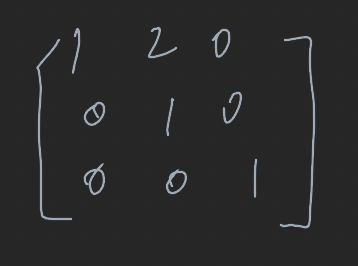 1 2 0
0 1 0
0 0 1